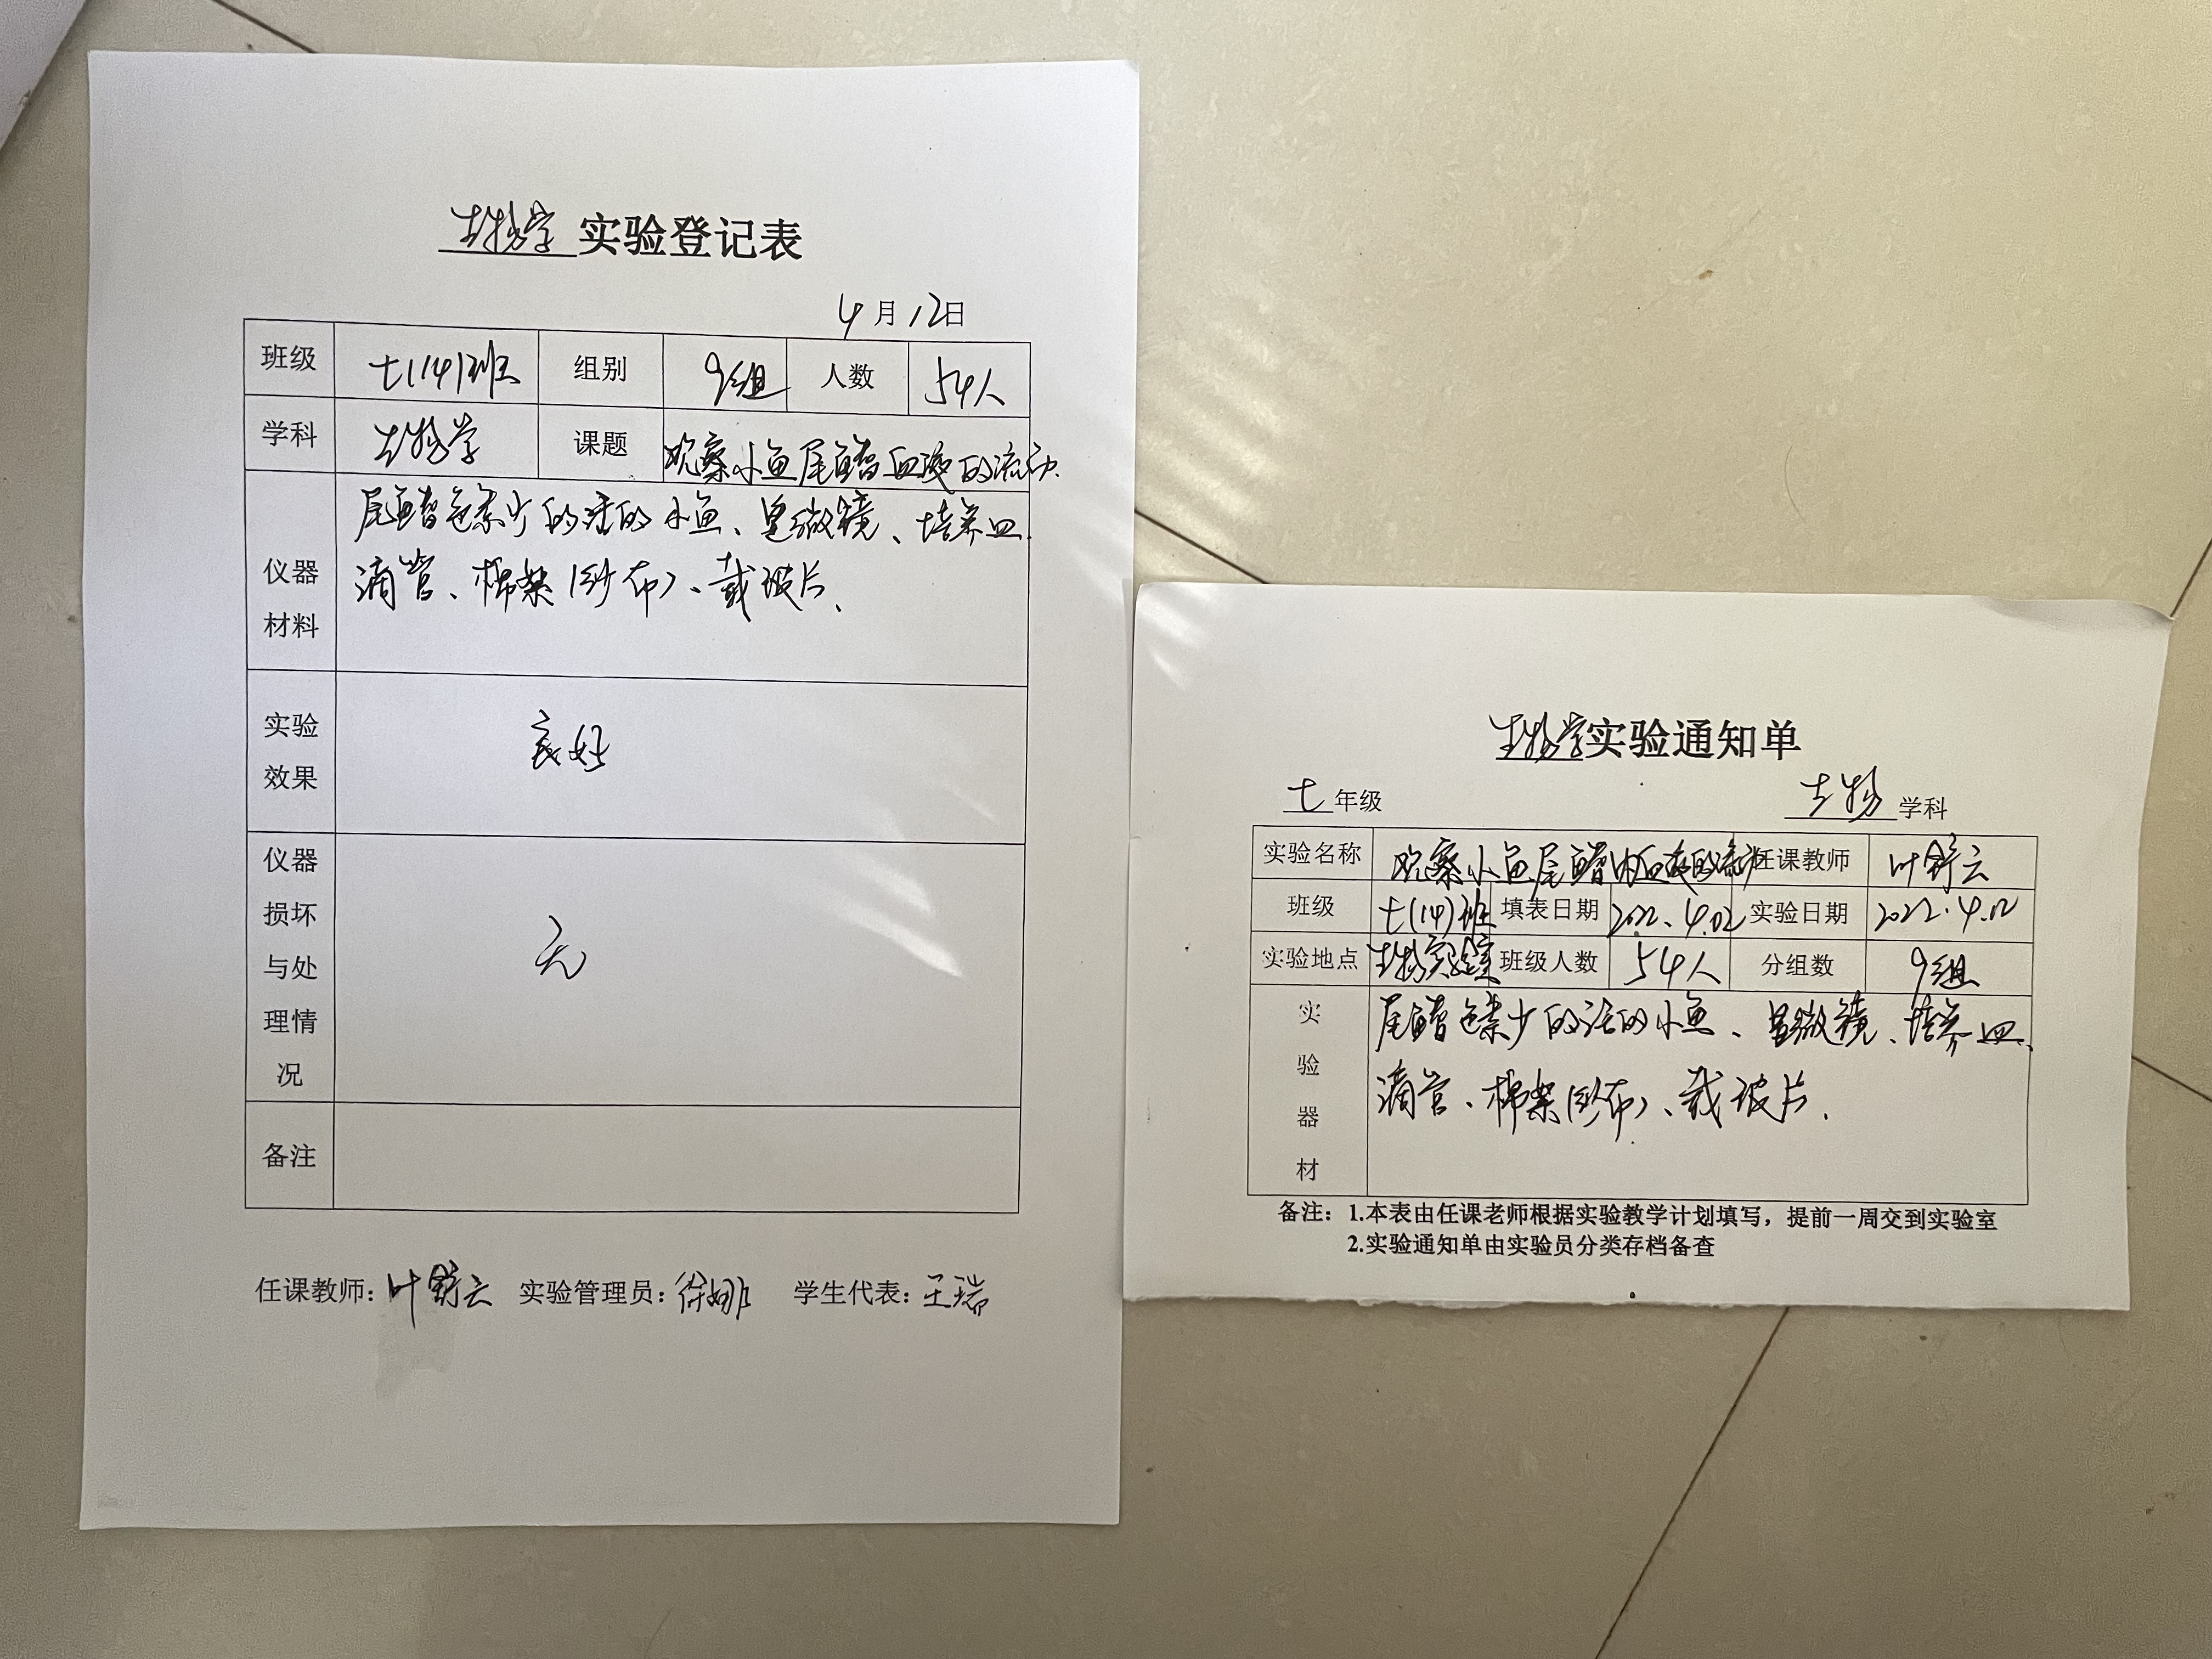 生物学实验登记表
4月12日
班级 七(14)班 组别 9组 人数 54人
学科 生物学 课题 观察小鱼尾鳍血液的流动.
仪器材料 尾鳍色素少的活的小鱼、显微镜、培养皿.
滴管、棉絮(纱布)、载玻片、
实验效果 良好
仪器损坏与处理情况 无
备注
任课教师：叶舒云 实验管理员：徐娜 学生代表：王瑞
生物学实验通知单
七年级 生物学科
实验名称 观察小鱼尾鳍内血液的流动 任课教师 叶舒云
班级 七(14)班 填表日期 2022.4.02 实验日期 2022.4.12
实验地点 生物实验室 班级人数 54人 分组数 9组
实验器材 尾鳍色素少的活的小鱼、显微镜、培养皿、
滴管、棉絮(纱布)、载玻片.
备注：1.本表由任课老师根据实验教学计划填写，提前一周交到实验室
2.实验通知单由实验员分类存档备查